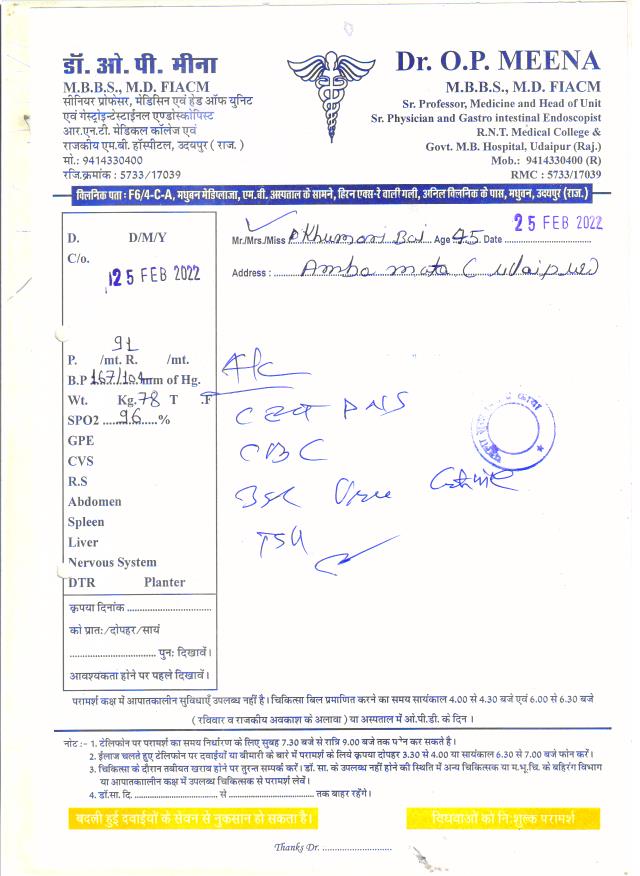 डॉ. ओ. पी. मीना
M.B.B.S., M.D. FIACM
सीनियर प्रोफेसर, मेडिसिन एवं हेड ऑफ युनिट
एवं गेस्ट्रोइन्टेस्टाईनल एण्डोस्कोपिस्ट
आर.एन.टी. मेडिकल कॉलेज एवं
राजकीय एम.बी. हॉस्पीटल, उदयपुर ( राज. )
मो.: 9414330400
रजि.क्रमांक : 5733/17039
Dr. O.P. MEENA
M.B.B.S., M.D. FIACM
Sr. Professor, Medicine and Head of Unit
Sr. Physician and Gastro intestinal Endoscopist
R.N.T. Medical College &
Govt. M.B. Hospital, Udaipur (Raj.)
Mob.: 9414330400 (R)
RMC : 5733/17039
क्लिनिक पता : F6/4-C-A, मधुबन मेडिप्लाजा, एम.बी. अस्पताल के सामने, हिरन एक्स-रे वाली गली, अनिल क्लिनिक के पास, मधुबन, उदयपुर (राज.)
D. D/M/Y
C/o.
25 FEB 2022
Mr./Mrs./Miss Khumani Bai Age 45 Date 25 FEB 2022
Address : Amba mata Udaipur
91
P. /mt. R. /mt.
B.P 167/104 mm of Hg.
Wt. Kg. 78 T .F
SPO2 96 %
GPE
CVS
R.S
Abdomen
Spleen
Liver
Nervous System
DTR Planter
PNS
CBC
TSH
कृपया दिनांक
को प्रात:/दोपहर/सायं
पुन: दिखावें।
आवश्यकता होने पर पहले दिखावें।
परामर्श कक्ष में आपातकालीन सुविधाएँ उपलब्ध नहीं है। चिकित्सा बिल प्रमाणित करने का समय सायंकाल 4.00 से 4.30 बजे एवं 6.00 से 6.30 बजे
( रविवार व राजकीय अवकाश के अलावा ) या अस्पताल में ओ.पी.डी. के दिन ।
नोट :- 1. टेलिफोन पर परामर्श का समय निर्धारण के लिए सुबह 7.30 बजे से रात्रि 9.00 बजे तक फोन कर सकते है।
2. ईलाज चलते हुए टेलिफोन पर दवाईयों या बीमारी के बारे में परामर्श के लिये कृपया दोपहर 3.30 से 4.00 या सायंकाल 6.30 से 7.00 बजे फोन करें।
3. चिकित्सा के दौरान तबीयत खराब होने पर तुरन्त सम्पर्क करें। डॉ. सा. के उपलब्ध नहीं होने की स्थिति में अन्य चिकित्सक या म.भू.चि. के बहिरंग विभाग
या आपातकालीन कक्ष में उपलब्ध चिकित्सक से परामर्श लेवें।
4. डॉ.सा. दि. से तक बाहर रहेंगे।
बदली हुई दवाईयों के सेवन से नुकसान हो सकता है।
विधवाओं को नि:शुल्क परामर्श
Thanks Dr.